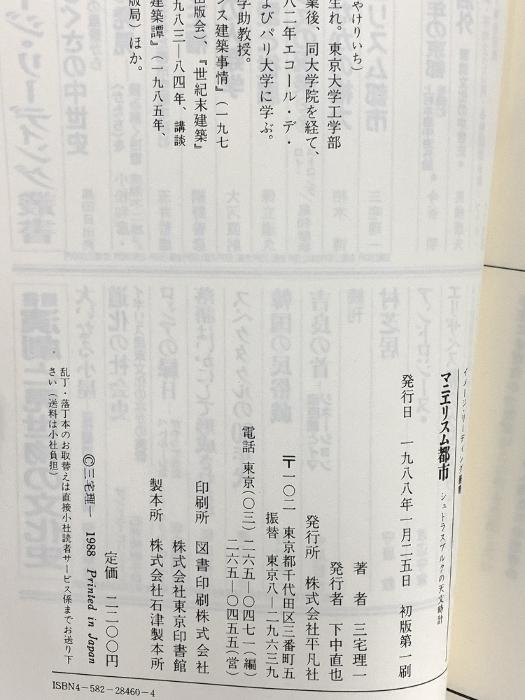 やけりいち）
生れ。東京大学工学部
業後、同大学院を経て、
八二年エコール・デ・
よびパリ大学に学ぶ。
学助教授。
ンス建築事情』（一九七
出版会）、『世紀末建築』
九八三―八四年、講談
建築譚』（一九八五年、
版局）ほか。
イメージ・リーディング叢書
マニエリスム都市 シュトラスブルクの天文時計
発行日 一九八八年一月二五日 初版第一刷
著者 三宅理一
発行者 下中直也
発行所 株式会社平凡社
〒一〇二 東京都千代田区三番町五
振替 東京八―二九六三九
電話 東京（〇三）二六五―〇四七一（編）
二六五―〇四五五（営）
印刷所 図書印刷株式会社
株式会社東京印書館
製本所 株式会社石津製本所
定価 二二〇〇円
©三宅理一 1988 Printed in Japan
乱丁・落丁本のお取替えは直接小社読者サービス係までお送り下
さい（送料は小社負担）
ISBN4-582-28460-4